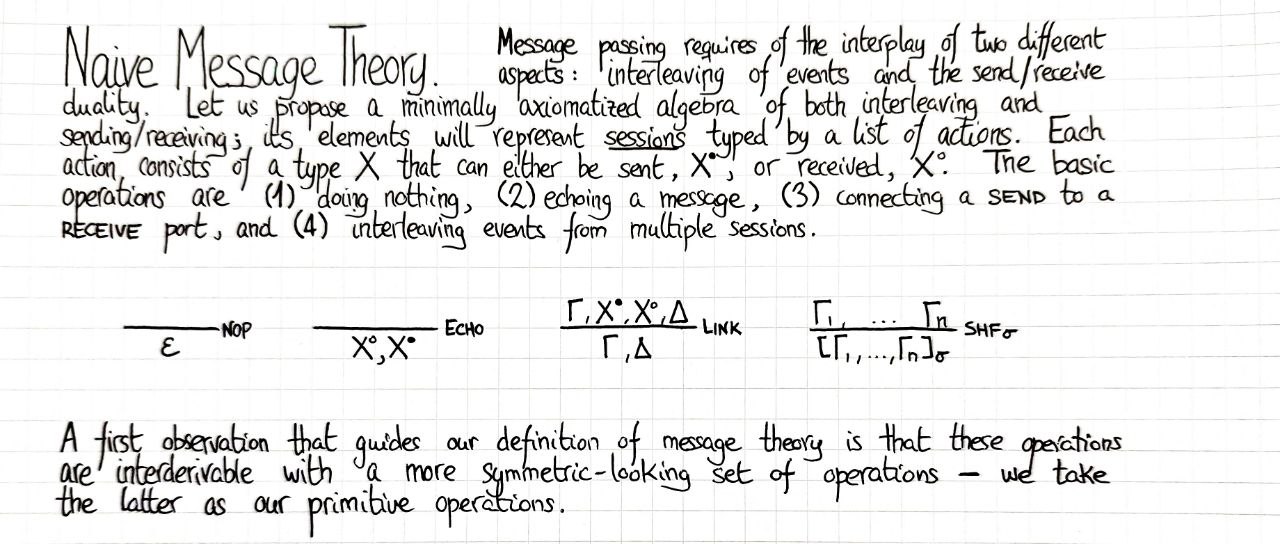 Naive Message Theory. Message passing requires of the interplay of two different
aspects: interleaving of events and the send/receive
duality. Let us propose a minimally axiomatized algebra of both interleaving and
sending/receiving; its elements will represent sessions typed by a list of actions. Each
action consists of a type X that can either be sent, X•, or received, X°. The basic
operations are (1) doing nothing, (2) echoing a message, (3) connecting a SEND to a
RECEIVE port, and (4) interleaving events from multiple sessions.
Γ, X•, X°, Δ
Γ₁, ... Γn
NOP
ECHO
LINK
SHFσ
ε
X°, X•
Γ, Δ
[Γ₁, ..., Γn]σ
A first observation that guides our definition of message theory is that these operations
are interderivable with a more symmetric-looking set of operations – we take
the latter as our primitive operations.